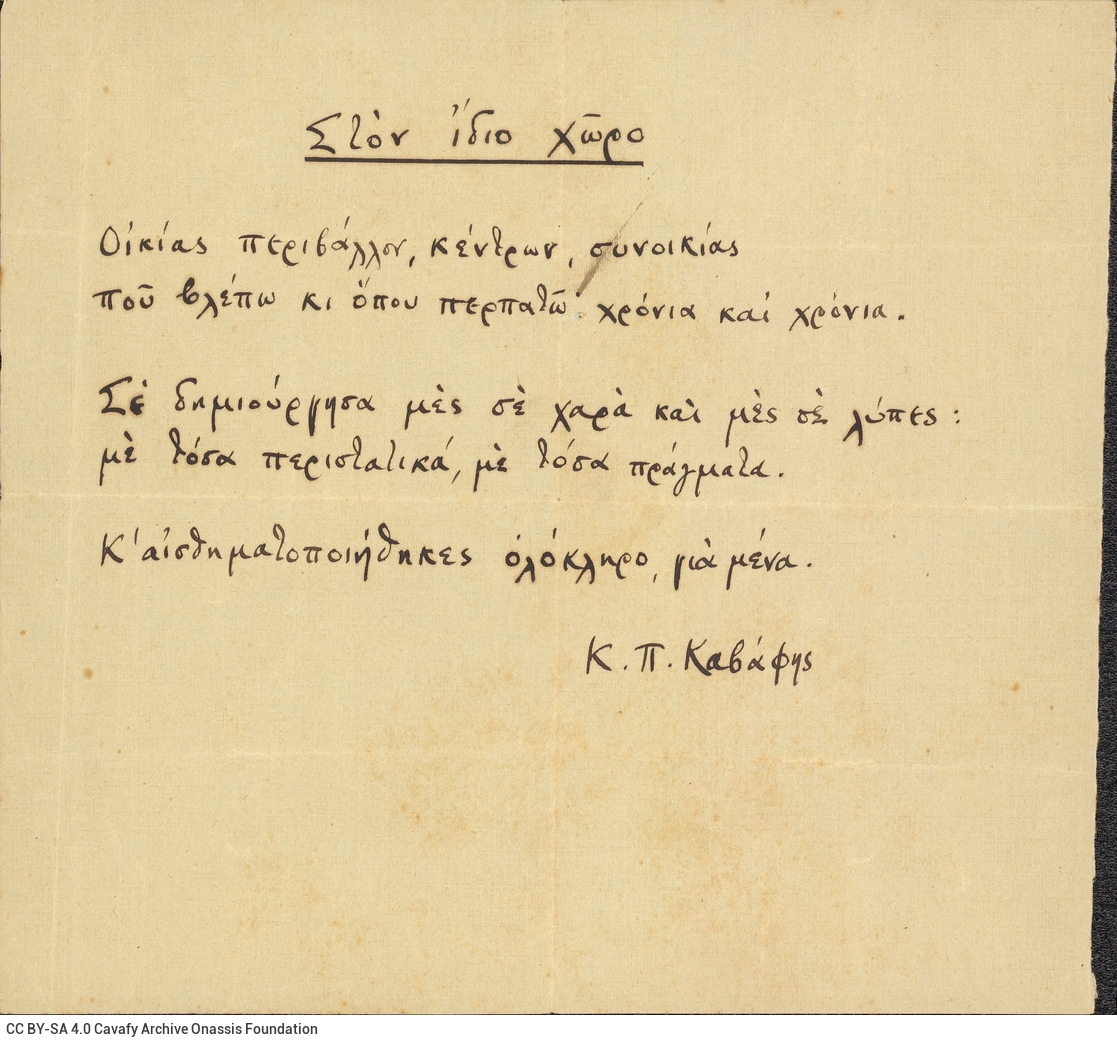 Στὸν ἴδιο χῶρο
Οἰκίας περιβάλλον, κέντρων, συνοικίας
ποῦ βλέπω κι ὅπου περπατῶ· χρόνια καὶ χρόνια.
Σὲ δημιούργησα μὲς σὲ χαρὰ καὶ μὲς σὲ λύπες:
μὲ τόσα περιστατικά, μὲ τόσα πράγματα.
Κ' αἰσθηματοποιήθηκες ὁλόκληρο, γιὰ μένα.
Κ. Π. Καβάφης
CC BY-SA 4.0 Cavafy Archive Onassis Foundation